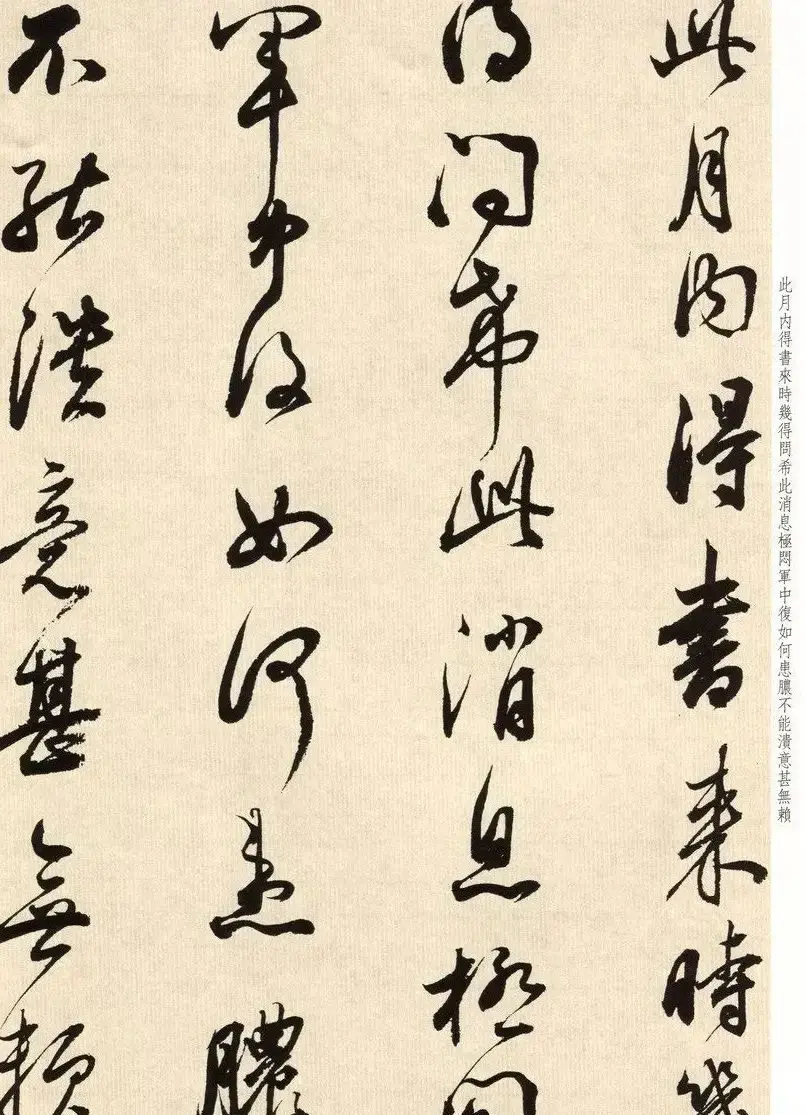 此月内得書來時幾
得問希此消息極悶
軍中復如何患膿
不能潰意甚無賴
此月内得書來時幾得問希此消息極悶軍中復如何患膿不能潰意甚無賴